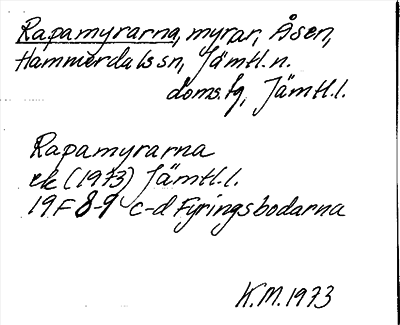 Rapamyrarna, myrar, Åsen,
Hammerdals sn, Jämtl. n.
doms.fg, Jämtl. l.
Rapamyrarna
ek (1973) Jämtl. l.
19F 8-9 c-d Fyringsbodarna
K.M. 1973